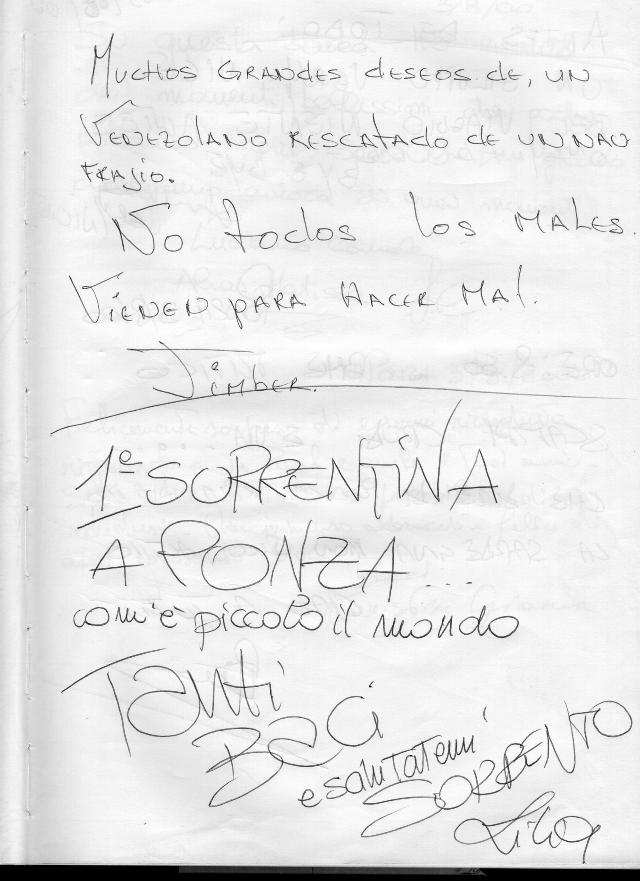 MUCHOS GRANDES deseos de, UN
VENEZOLANO RESCATADO de UN NAU
FRAJIO.
No todos los MALES.
VIENEN PARA HACER MAL.
Jimber.
1º SORRENTINA
A PONZA...
com'è piccolo il mondo
Tanti
Baci
e salutatemi
SORRENTO